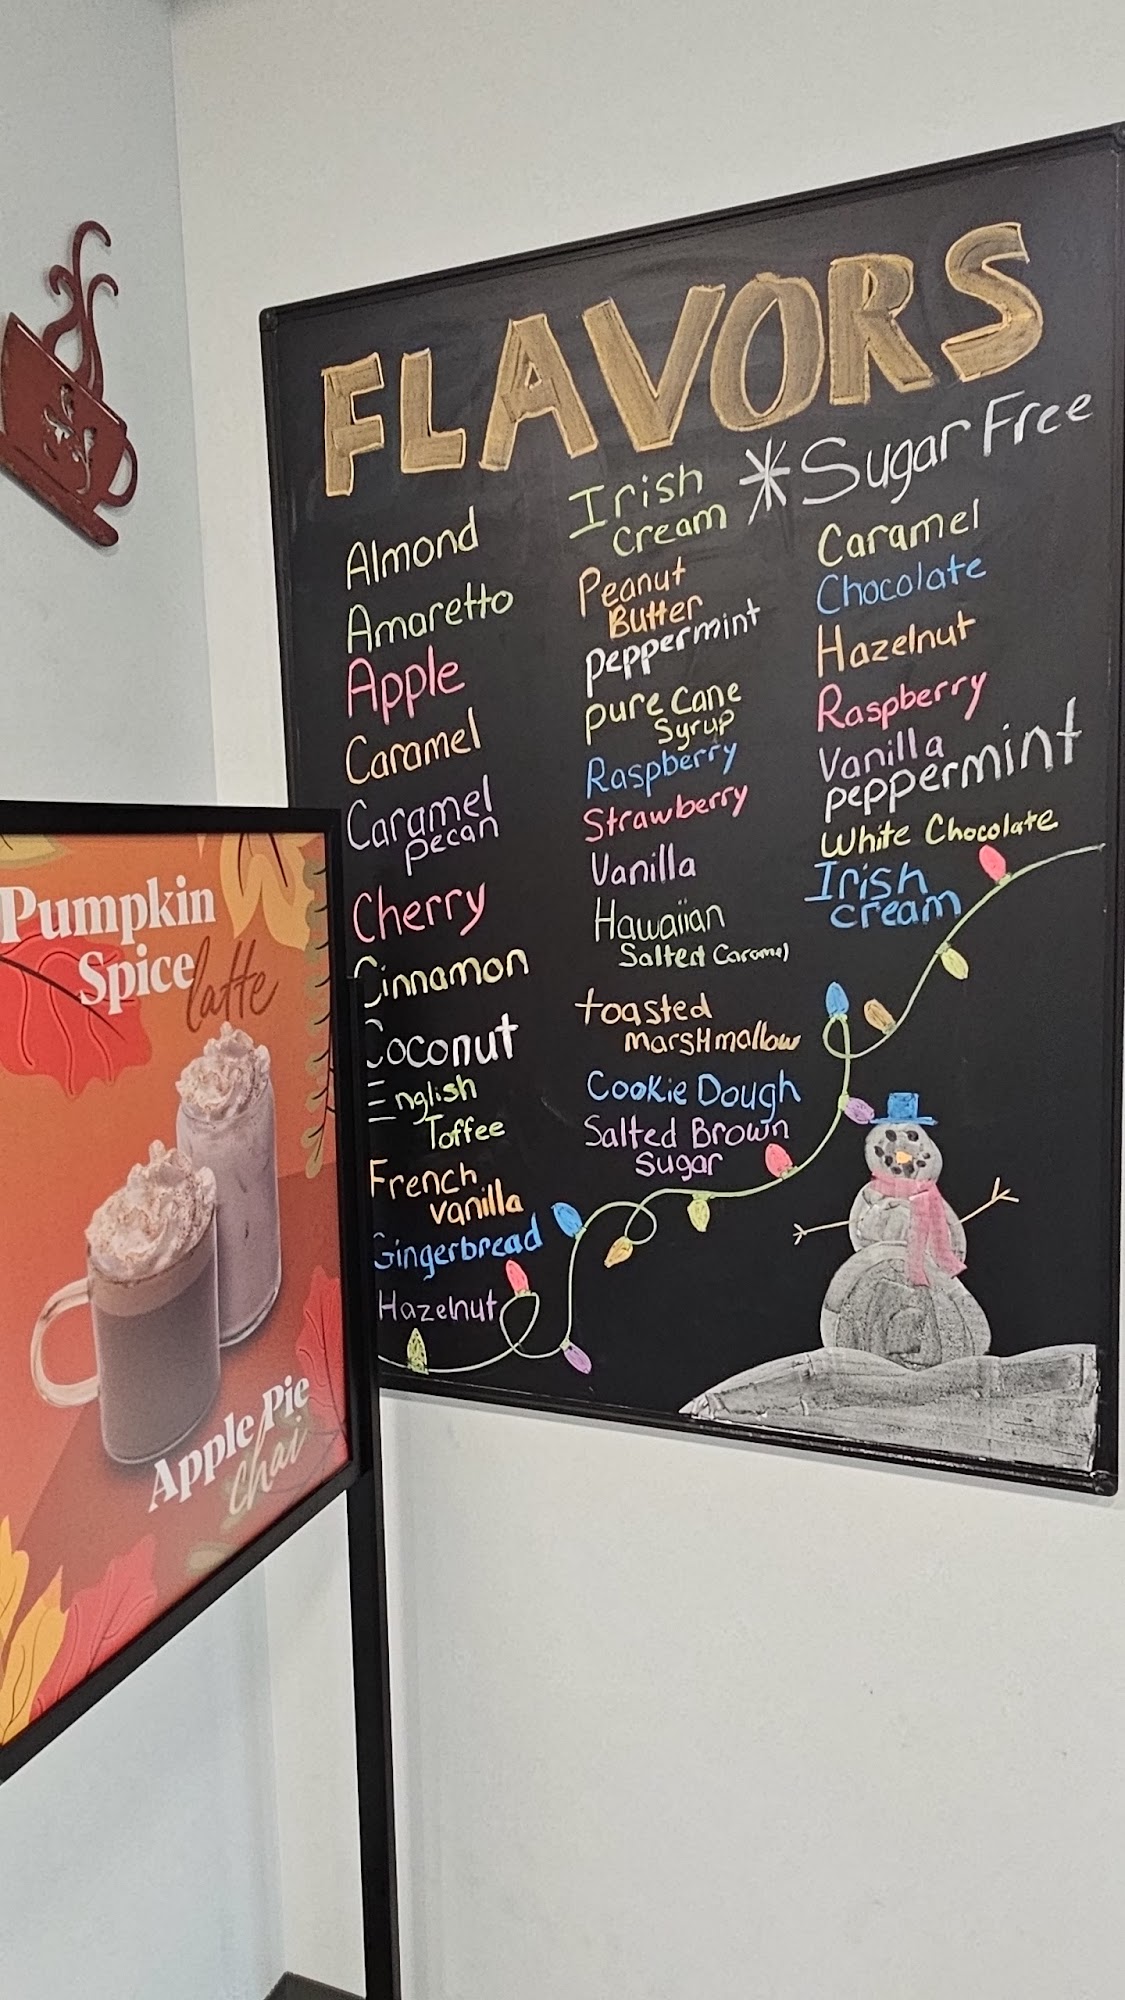 FLAVORS
*Sugar Free
Almond
Amaretto
Apple
Caramel
Caramel
pecan
Cherry
Cinnamon
Coconut
English
Toffee
French
vanilla
Gingerbread
Hazelnut
Irish
Cream
Peanut
Butter
peppermint
pure cane
Syrup
Raspberry
Strawberry
Vanilla
Hawaiian
Salted Caramel
toasted
marsHmallow
Cookie Dough
Salted Brown
Sugar
Caramel
Chocolate
Hazelnut
Raspberry
Vanilla
peppermint
White Chocolate
Irish
cream
Pumpkin
Spice latte
Apple Pie
chai